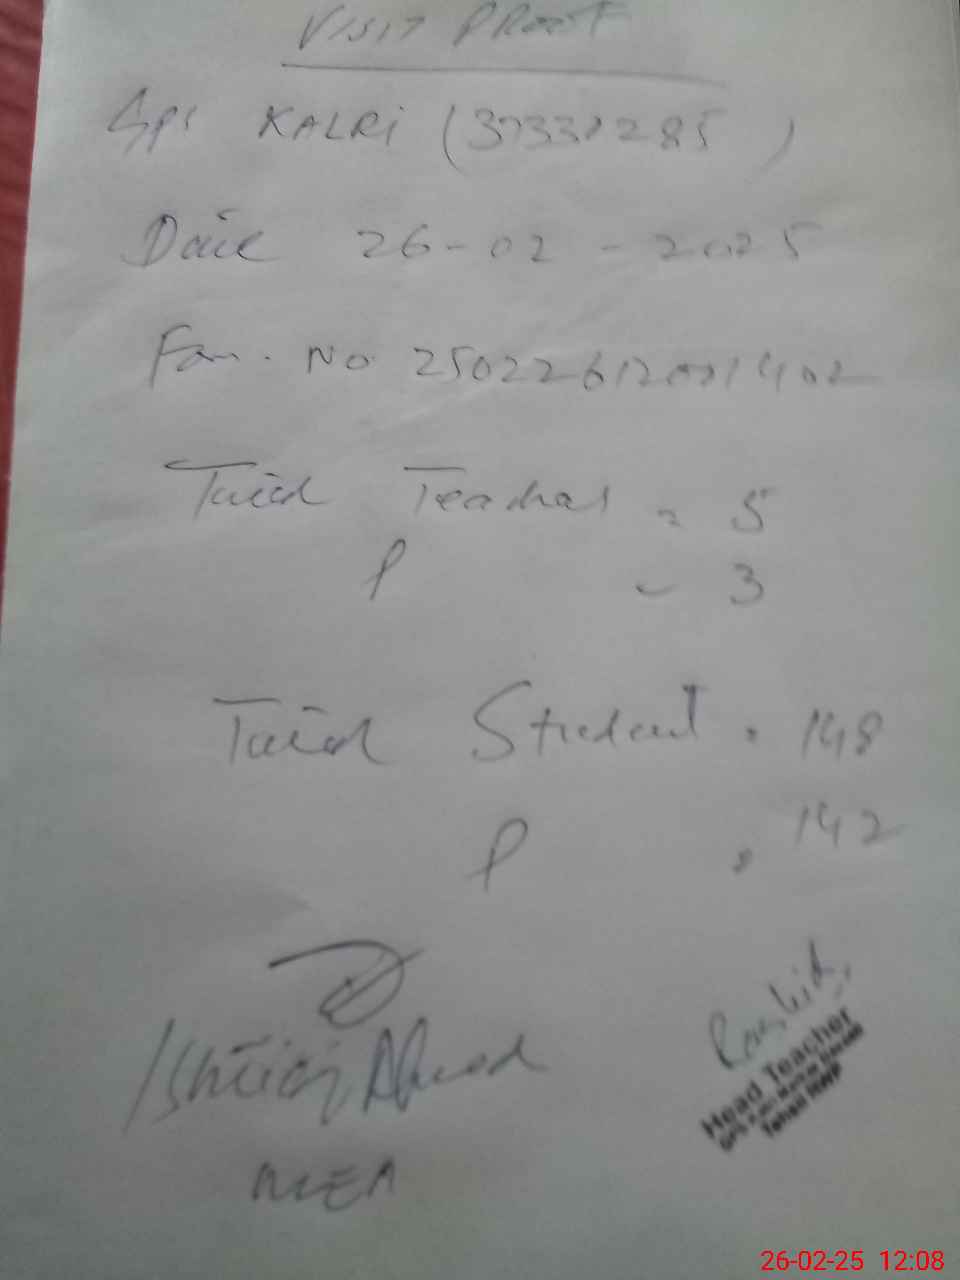 VISIT PROOF
GPS KALRI (37330285)
Date 26-02-2025
Fam. No 250226120001402
Total Teacher = 5
P - 3
Total Student = 148
P = 142
Ishtiaq Ahmad
MEA
Rashid
Head Teacher
26-02-25 12:08